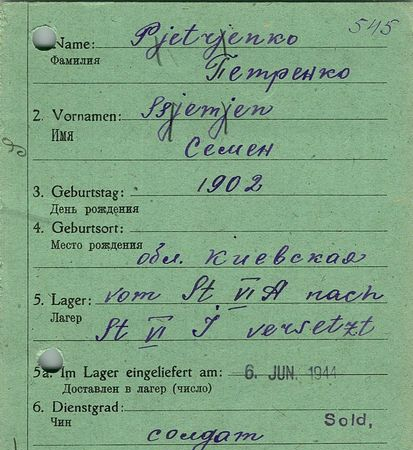 545
Name: Pjetrjenko
Фамилия
Петренко
2. Vornamen: Ssjemjen
Имя
Семен
3. Geburtstag: 1902
День рождения
4. Geburtsort:
Место рождения
обл. Киевская
5. Lager: vom St. VI A nach
Лагер
St VI J versetzt
5a. Im Lager eingeliefert am: 6. JUN. 1944
Доставлен в лагер (число)
6. Dienstgrad: Sold,
Чин
солдат